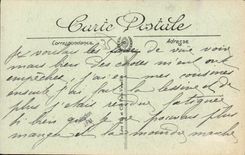 Carte Postale
Correspondance Adresse
je voulais les jours de vue voir
mais bien des choses m'en ont
empêchée, j'ai eu mes cousines
ensuite j'ai fait la lessive et de
plus j'étais rendue fatiguée
si bien que je ne pouvais plus
manger et la moindre marche